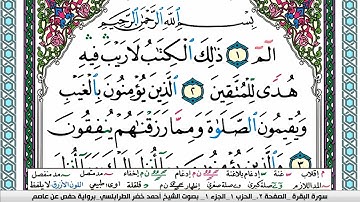 بِسْمِ ٱللَّهِ ٱلرَّحْمَٰنِ ٱلرَّحِيمِ
الٓمٓ ١ ذَٰلِكَ ٱلْكِتَٰبُ لَا رَيْبَ فِيهِ
هُدًى لِّلْمُتَّقِينَ ٢ ٱلَّذِينَ يُؤْمِنُونَ بِٱلْغَيْبِ
وَيُقِيمُونَ ٱلصَّلَوٰةَ وَمِمَّا رَزَقْنَٰهُمْ يُنفِقُونَ
٣
سورة البقرة . الصفحة ٢ . الحزب ١ . الجزء ١ . بصوت الشيخ أحمد خضر الطرابلسي . برواية حفص عن عاصم